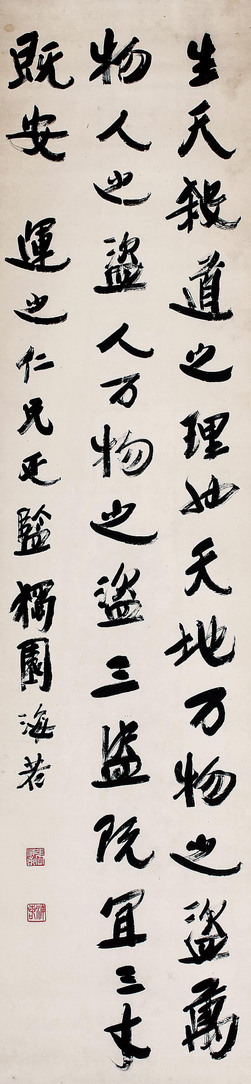 生天殺道之理也天地万物之盜萬
物人之盜人万物之盜三盜既宜三才
既安 運之仁兄正鑒 獨園海若